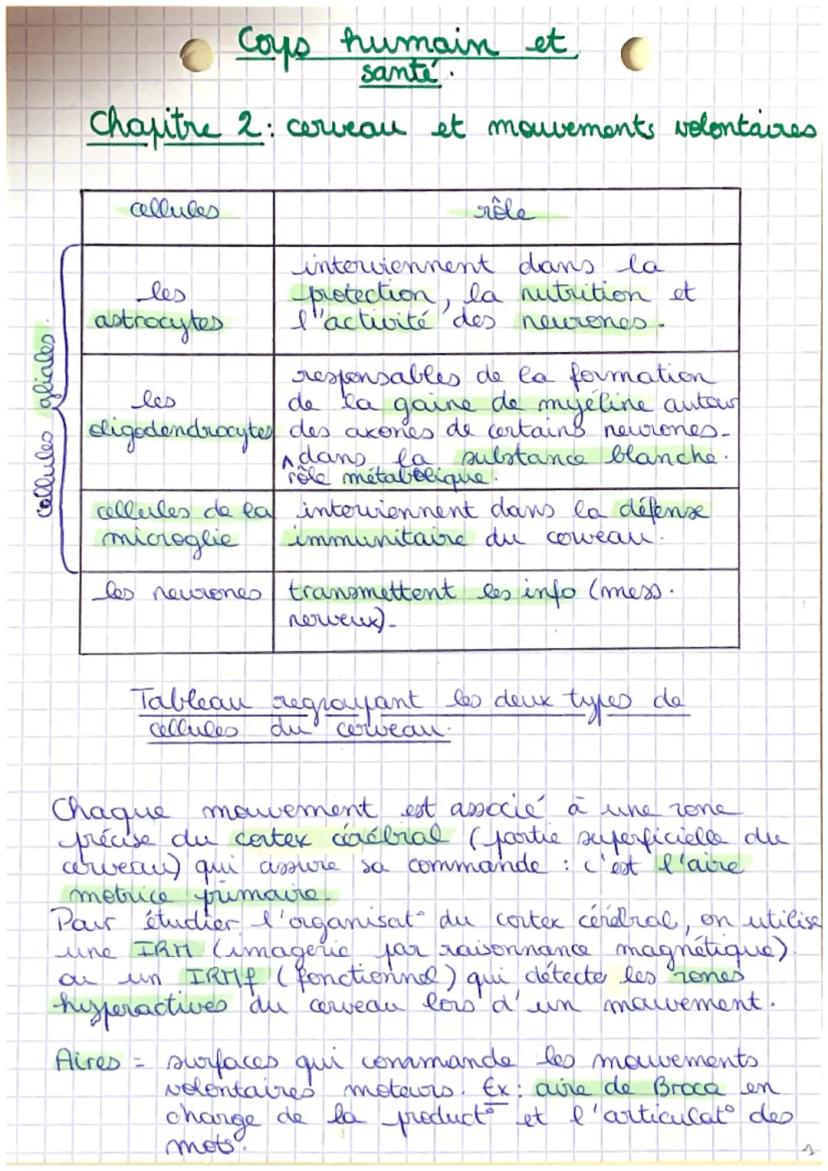 Corps humain et
santé.
Chapitre 2 : cerveau et mouvements volontaires
cellules rôle
cellules gliales.
les
astrocytes
interviennent dans la
protection, la nutrition et
l'activité des neurones.
les
oligodendrocytes
responsables de la formation
de la gaine de myéline autour
des axones de certains neurones -
dans la substance blanche.
^ rôle métabolique.
cellules de la
microglie
interviennent dans la défense
immunitaire du cerveau.
les neurones
transmettent les info (mess.
nerveux).
Tableau regroupant les deux types de
cellules du cerveau.
Chaque mouvement est associé à une zone
précise du cortex cérébral (partie superficielle du
cerveau) qui assure sa commande : c'est l'aire
motrice primaire.
Pour étudier l'organisat° du cortex cérébral, on utilise
une IRM (imagerie par raisonnance magnétique)
ou un IRMf (fonctionnel) qui détecte les zones
hyperactives du cerveau lors d'un mouvement.
Aires = surfaces qui commande les mouvements
volontaires moteurs. Ex : aire de Broca en
charge de la product° et l'articulat° des
mots.
1